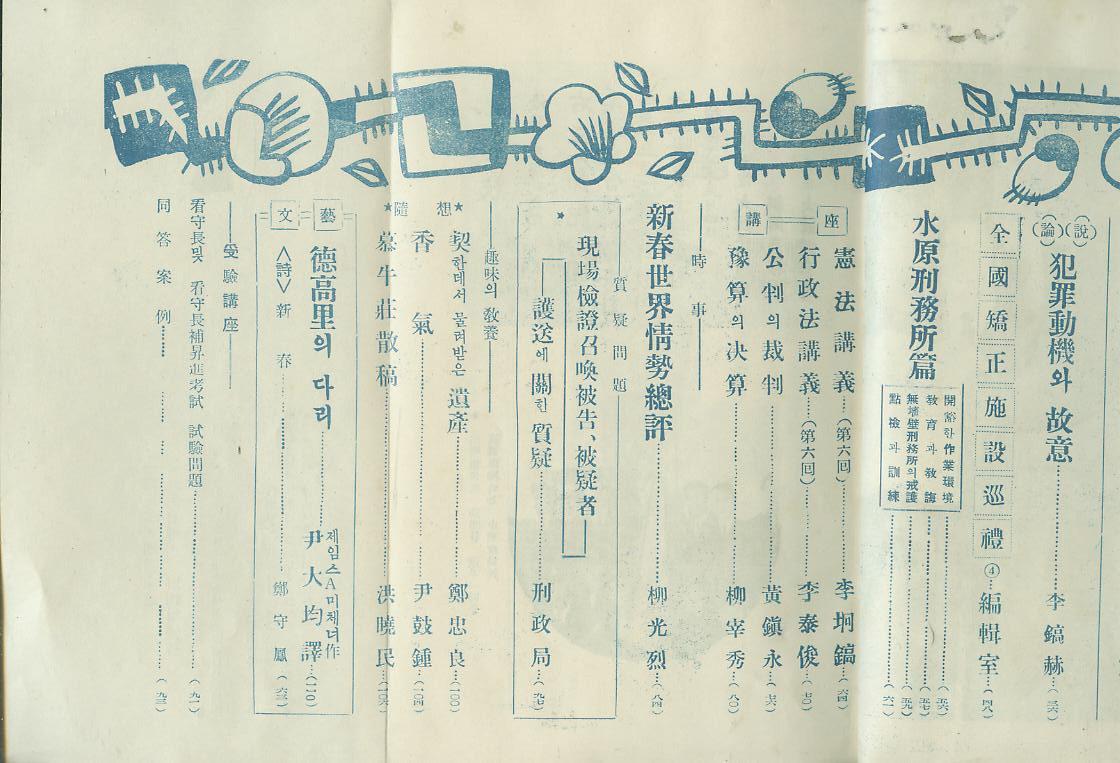 (論)(說)
犯罪動機와 故意 李鎬赫 (三六)
全國矯正施設巡禮④ 編輯室 (四八)
水原刑務所篇
開豁한作業環境 (五六)
敎育과敎誨 (五七)
無墻壁刑務所의戒護 (五九)
點檢과訓練 (六一)
講座
憲法講義 (第六回) 李坰鎬 (六四)
行政法講義 (第六回) 李泰俊 (七〇)
公判의裁判 黃鎭永 (七六)
豫算의決算 柳宰秀 (八〇)
時事
新春世界情勢總評 柳光烈 (八四)
質疑問題
現場檢證召喚被吿、被疑者
護送에 關한 質疑 刑政局 (九七)
趣味의 敎養
★隨想★
契한데서 물려받은 遺產 鄭忠良 (一〇〇)
香氣 尹鼓鍾 (一〇四)
慕牛莊散稿 洪曉民 (一〇六)
文藝
德高里의 다리 제임스A미체너作 尹大均譯 (一一〇)
<詩>新春 鄭守鳳 (六三)
受驗講座
看守長및 看守長補昇進考試 試驗問題 (九一)
同答案例 (九三)